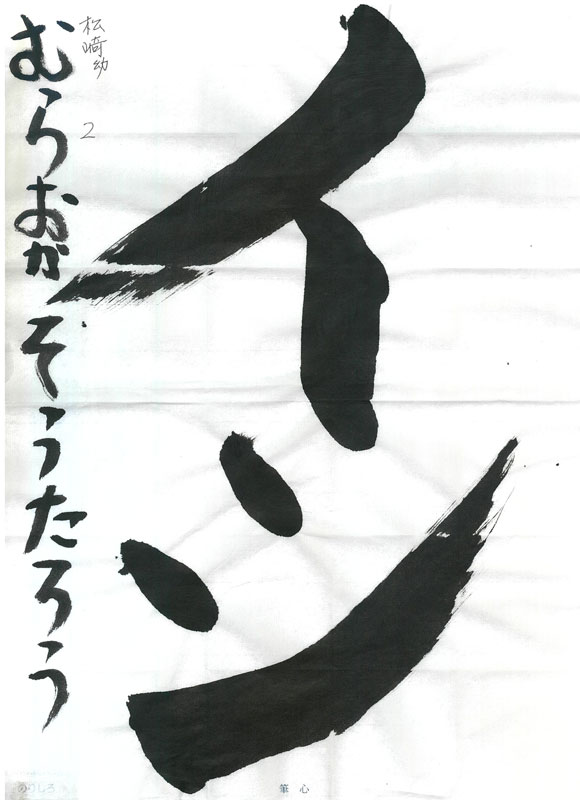 イシ
松崎幼
2
むらおかそうたろう
のりしろ
筆心